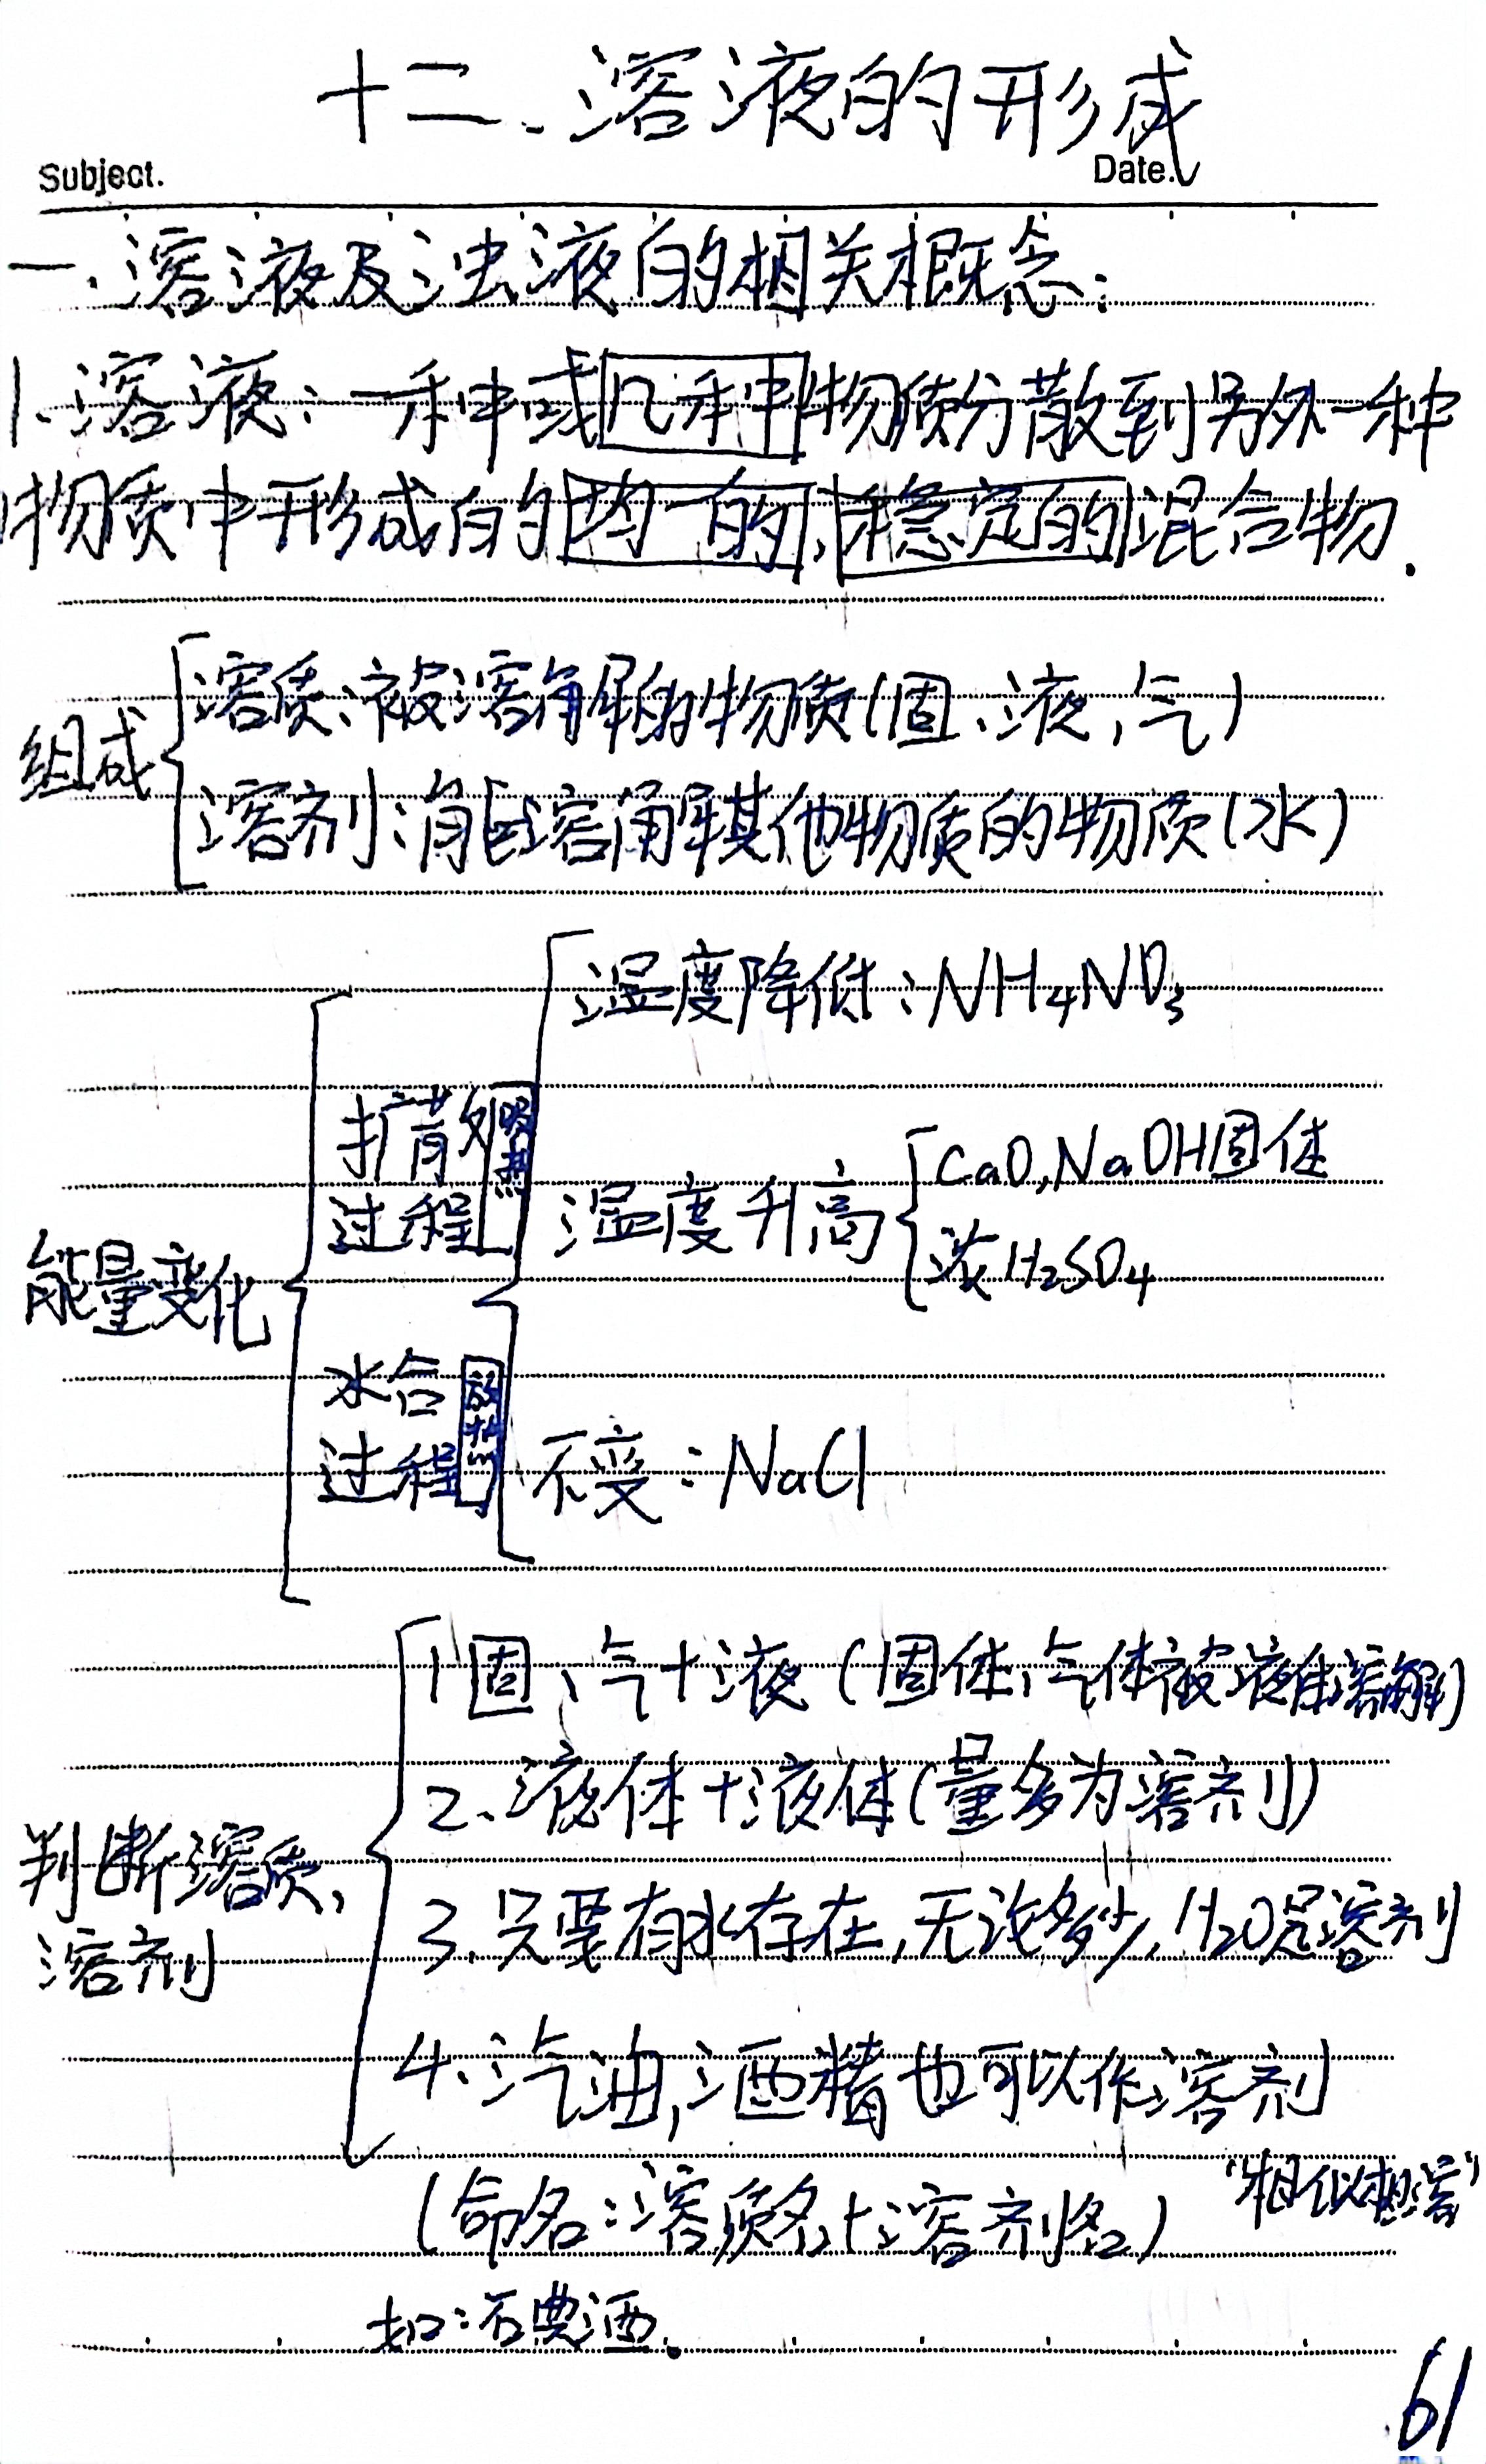 十二、溶液的形成
Subject.
Date.
一、溶液及浊液的相关概念:
1.溶液:一种或几种物质分散到另外一种
物质中形成的均一的,稳定的混合物.
组成
溶质:被溶解的物质(固、液,气)
溶剂:能溶解其他物质的物质(水)
能量变化
扩散
过程
吸热
水合
过程
放热
温度降低:NH₄NO₃
温度升高
CaO,NaOH固体
浓H₂SO₄
不变:NaCl
判断溶质、
溶剂
1固、气+液(固体、气体被液体溶解)
2、液体+液体(量多为溶剂)
3、只要有水存在,无论多少,H₂O是溶剂
4、汽油,酒精也可以作溶剂
"相似相溶"
(命名:溶质名+溶剂名)
如:石典酒.
61